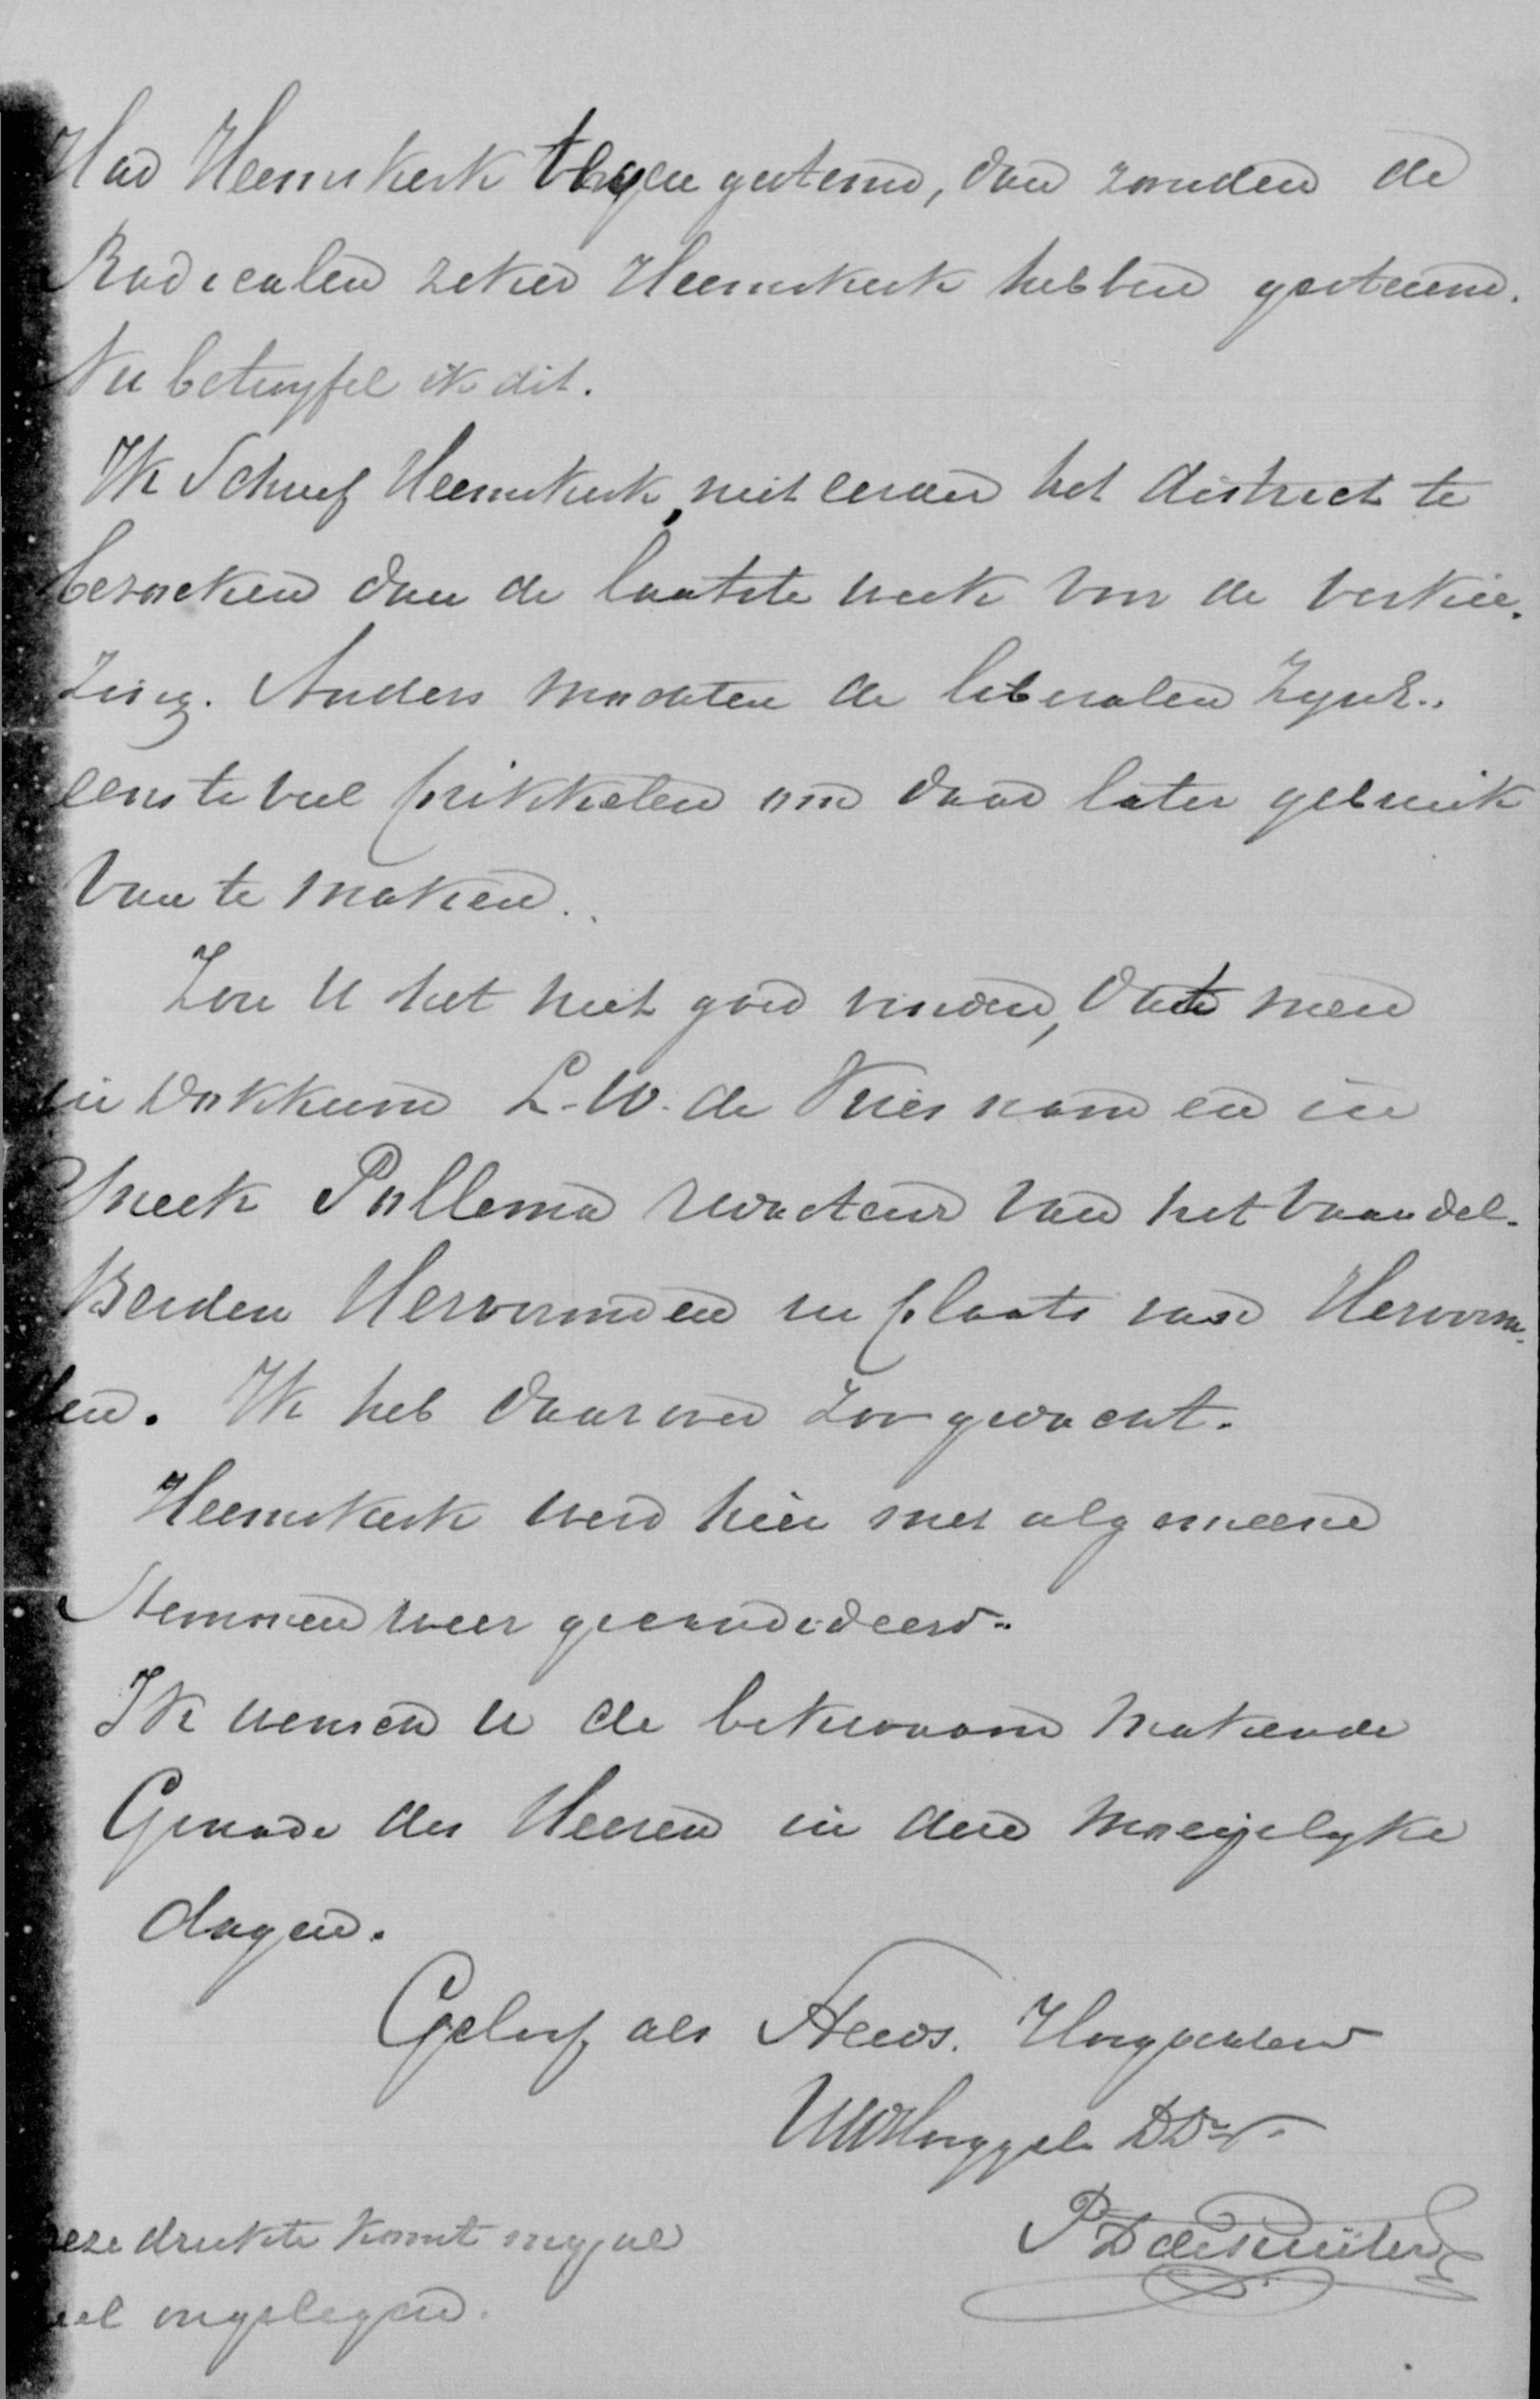 Had Heemskerk tegen gestemd, dan zouden de
Radicalen zeker Heemskerk hebben gesteund.
Nu betwyfel ik dit.
Ik Schreef Heemskerk, niet eerder het district te
bezoeken dan de laatste week voor de verkie-
zing. Anders mochten de liberalen Zyn E..
eens te veel prikkelen om daar later gebruik
van te maken.
Zou U het niet goed vinden, dat men
in Dokkum L. W. de Vries nam en in
Sneek Pollema redacteur van het Vaandel.
Beiden Hervormden in plaats van Hervorm-
den. Ik heb daarover zoo gedacht.
Heemskerk werd hier met algemeene
Stemmen weer gecandideerd.
Ik wensch U de bekwaam makende
Genade des Heeren in deze moeijelyke
dagen.
Geloof als Steeds. Hoogachtend
UWHooggel. DDr.
P D de Ruiter
deze drukte komt my al
veel ongelegen.